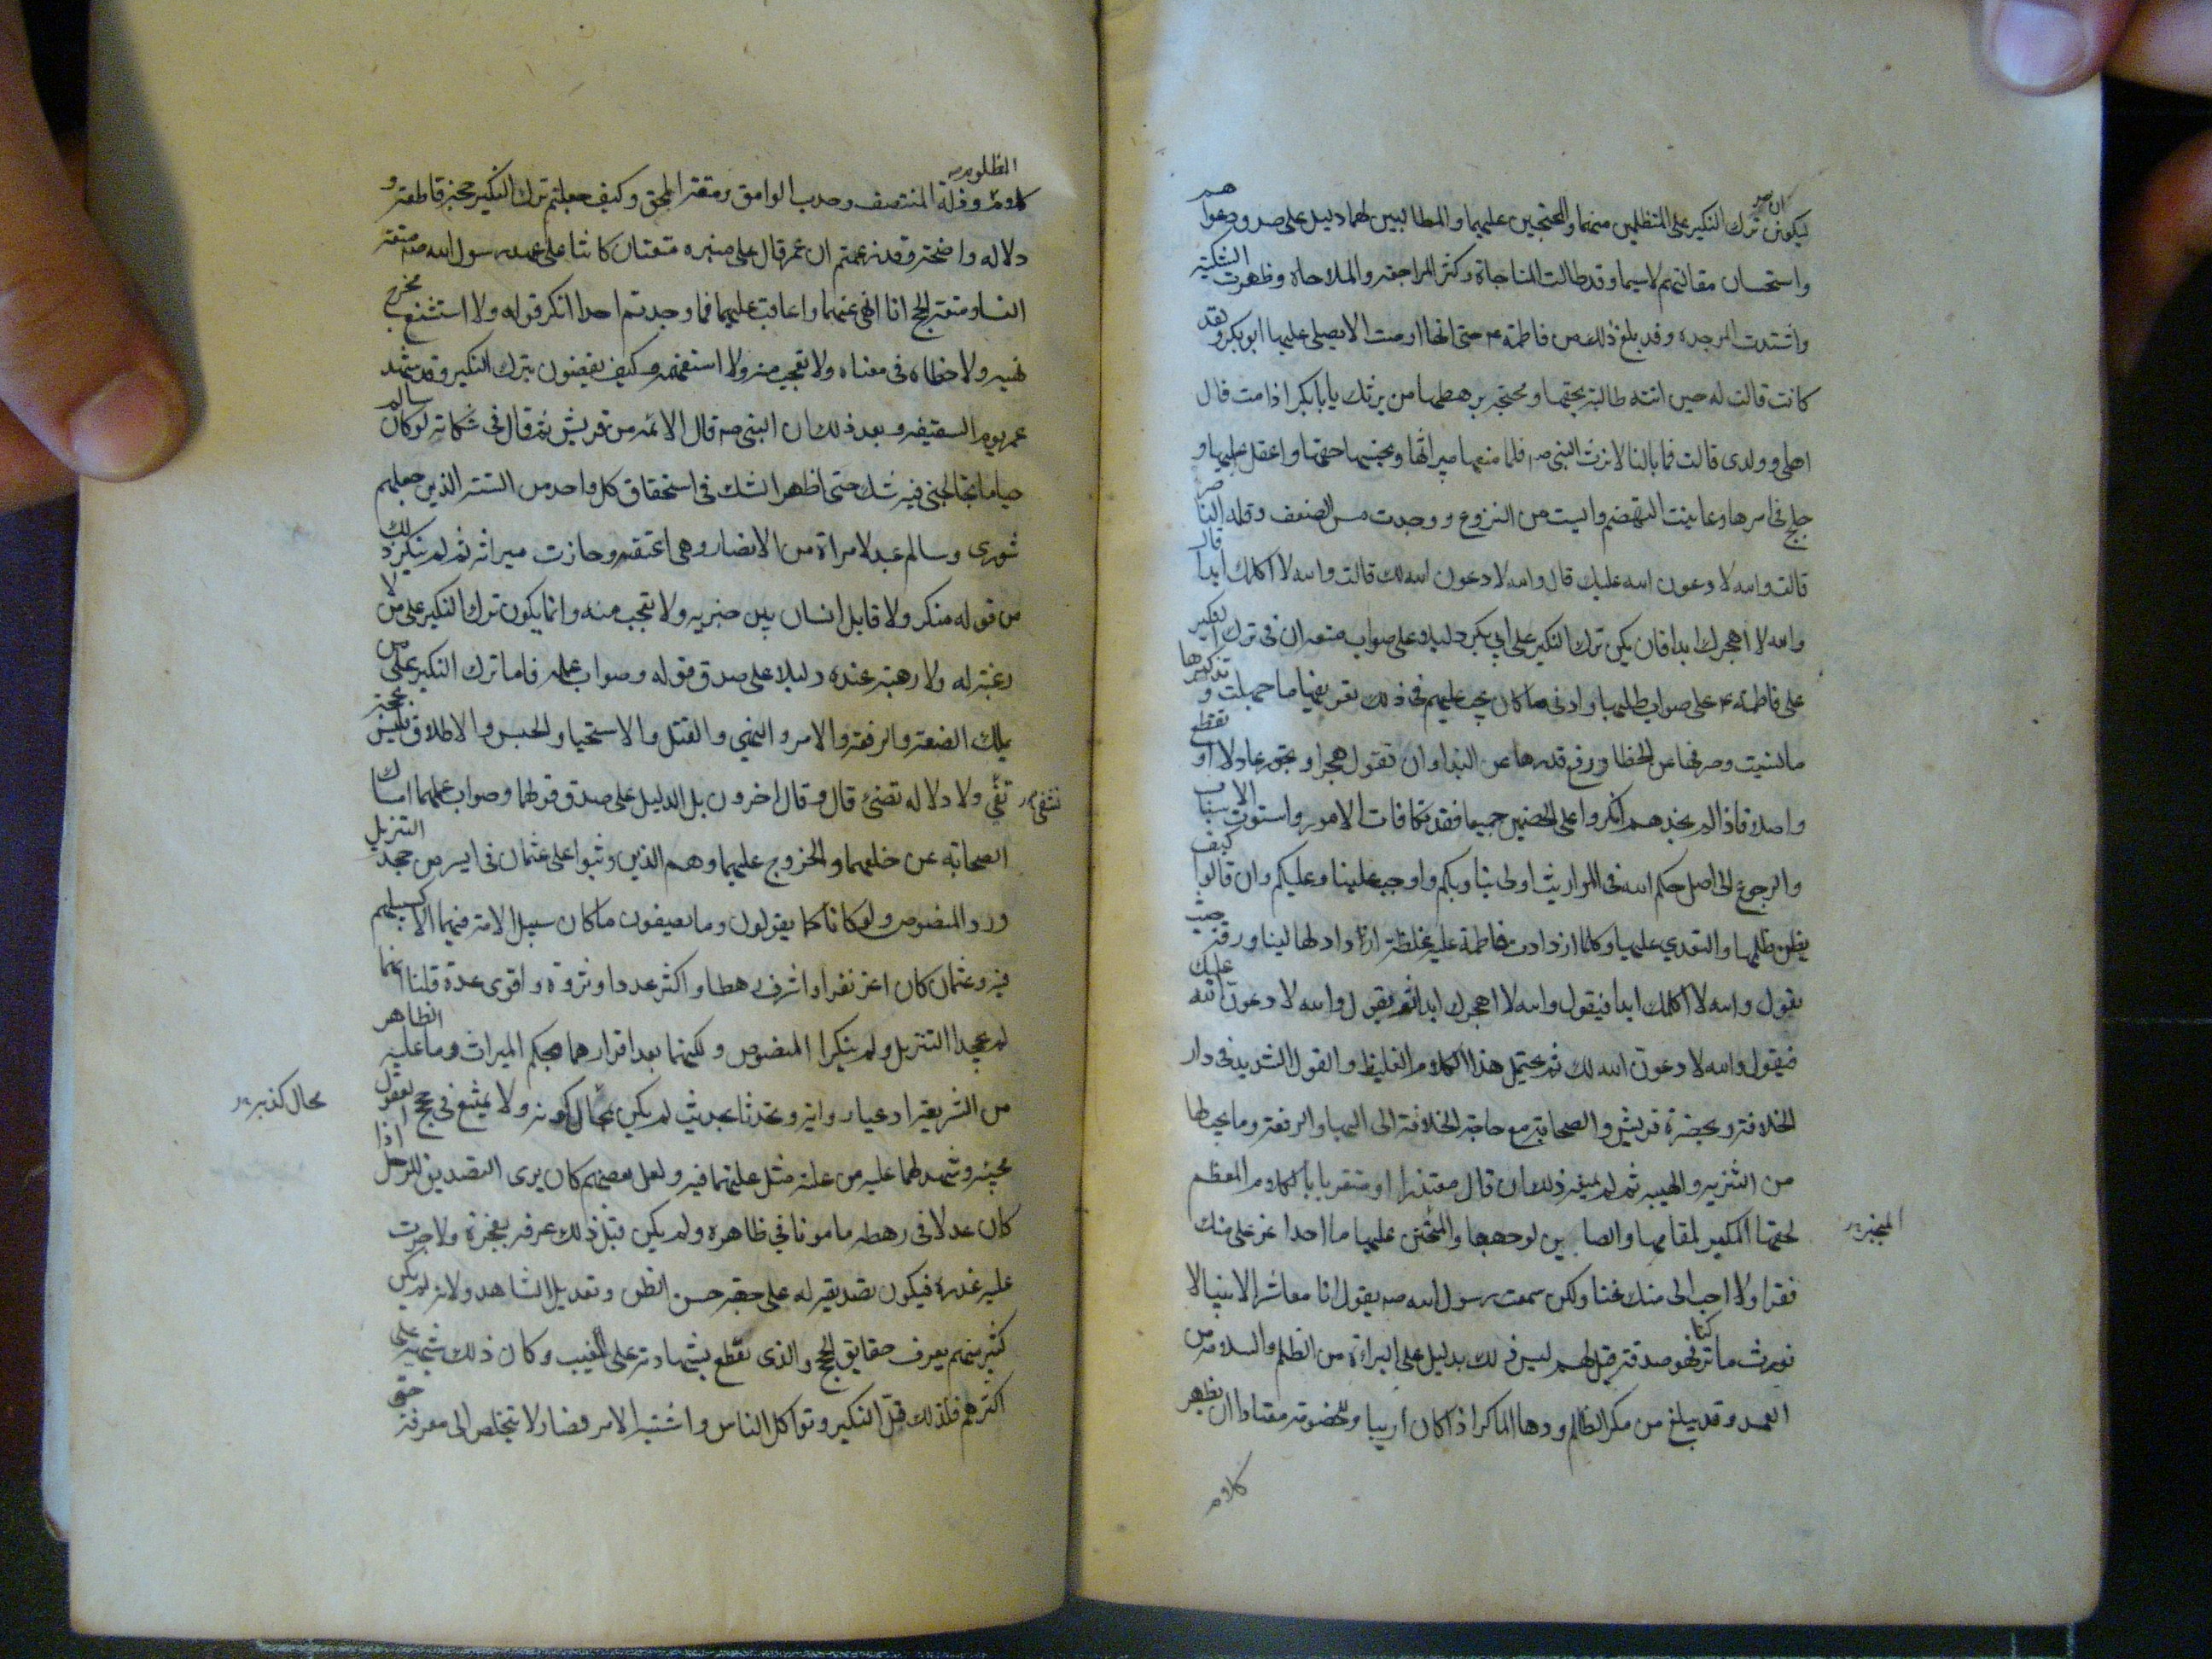 ليكونن ان ترك النكير على المتظلمين منهما والمحتجين عليهما والمطالبين لهما دليل على صدق دعواهم
واستحسان مقالتهم لاسيما وقد طالت المناجاة وكثر المراجعة والملاحاة وظهرت الشكية
واشتدت الموجدة وقد بلغ ذلك من فاطمة ع حتى انها اوصت الا يصلي عليها ابوبكر ولقد
كانت قالت له حين اتته طالبة بحقها ومحتجة برهطها من يرثك يا بابكر اذا مت قال
اهلي وولدي قالت فما بالنا لا نرث النبي ص فلما منعها ميراثها وبخسها حقها واعتل عليها و
جلح في امرها وعاينت التهضم وايست من النزوع ووجدت مس الضعف وقلة الناصر
قالت والله لادعون الله عليك قال والله لادعون الله لك قالت والله لا اكلمك ابدا قال
والله لا اهجرك ابدا فان يكن ترك النكير على ابي بكر دليلا على صواب منعه ان في ترك النكير
على فاطمة ع على صواب طلبها وادنى ما كان يجب عليهم في ذلك تعريفها ما جهلت و تذكيرها
ما نسيت وصرفها عن الخطا ورفع قدرها عن البذا وان تقول هجرا او تجور عادلا او تقطع
واصلا فاذا لم نجدهم انكروا على الخصمين جميعا فقد تكافات الامور واستوت الاسباب
والرجوع الى اصل حكم الله في المواريث اولى بنا وبكم واوجب علينا وعليكم وان قالوا كيف
يظن ظلمها والتعدي عليها وكلما ازدادت فاطمة عليه غلظة ازداد لها لينا ورقة حيث
تقول والله لا اكلمك ابدا فيقول والله لا اهجرك ابدا ثم يقول والله لادعون الله عليك
فيقول والله لادعون الله لك ثم يحتمل هذا الكلام الغليظ والقول الشديد في دار
الخلافة وبحضرة قريش والصحابة مع حاجة الخلافة الى البها والرفعة وما يجب لها
من التنزيه والهيبة ثم لم يمنعه ذلك ان قال معتذرا او متقربا بالكلام المعظم
لحقها المكبر لمقامها والصاين لوجهها والمتحنن عليها ما احدا عز علي منك
فقرا ولا احب الي منك غنا ولكن سمعت رسول الله ص يقول انا معاشر الانبيا لا
نورث ما تركنا فهو صدقة قيل لهم ليس ذلك بدليل على البراءة من الظلم والسلامة من
العمد وقد يبلغ من مكر الظالم ودها الماكر اذا كان اريبا وللخصومة معتادا ان يظهر
كلام
كلام المظلوم وذلة المنتصف وحدب الوامق ومقة المحق وكيف جعلتم ترك النكير حجة قاطعة و
دلالة واضحة وقد زعمتم ان عمر قال على منبره متعتان كانتا على عهد رسول الله ص متعة
النسا ومتعة الحج انا انهى عنهما واعاقب عليهما فما وجدتم احدا انكر قوله ولا استشنع مخرج
نهيه ولا خطاه في معناه ولا تعجب منه ولا استفهمه وكيف تقضون بترك النكير وقد شهد
عمر يوم السقيفة وبعد ذلك ان النبي ص قال الائمة من قريش ثم قال في شكاته لو كان سالم
حيا ما تخالجني فيه شك حتى اظهر الشك في استحقاق كل واحد من الستة الذين جعلهم
شورى وسالم عبد لامراة من الانصار وهي اعتقته وحازت ميراثه ثم لم ينكر ذلك
من قوله منكر ولا قابل انسان بين خبريه ولا تعجب منه وانما يكون ترك النكير على من لا
رغبة له ولا رهبة عنده دليلا على صدق قوله وصواب عمله فاما ترك النكير على من
يملك الضعة والرفعة والامر والنهي والقتل والاستحيا والحبس والاطلاق فليس بحجة
تفي ولا دلالة تضئ قال وقال اخرون بل الدليل على صدق قولهما وصواب عملهما امساك
الصحابة عن خلعهما والخروج عليهما وهم الذين وثبوا على عثمان في ايسر من جحد التنزيل
ورد المنصوص ولو كانا كما يقولون وما يصفون ما كان سبيل الامة فيهما الا كسبيلهم
فيه وعثمان كان اعز نفرا واشرف رهطا واكثر عددا وثروة واقوى عدة قلنا انهما
لم يجحدا التنزيل ولم ينكرا المنصوص ولكنهما بعد اقرارهما بحكم الميراث وما عليه الظاهر
من الشريعة ادعيا رواية وتحدثا بحديث لم يكن بمحال كونه ولا يمتنع في حجج العقول
مجيئه وشهد لهما عليه من علته مثل علتهما فيه ولعل بعضهم كان يرى التصديق للرجل اذا
كان عدلا في رهطه مامونا في ظاهره ولم يكن قبل ذلك عرفه بفجرة ولا جرت
عليه غدرة فيكون تصديقه له على جهة حسن الظن وتعديل الشاهد ولانه لم يكن
كثير منهم يعرف حقايق الحجج والذي يقطع بشهادته على الغيب وكان ذلك شبهة على
اكثرهم فلذلك قل النكير وتواكل الناس واشتبه الامر فصار لا يتخلص الى معرفة حق
محال كذبه